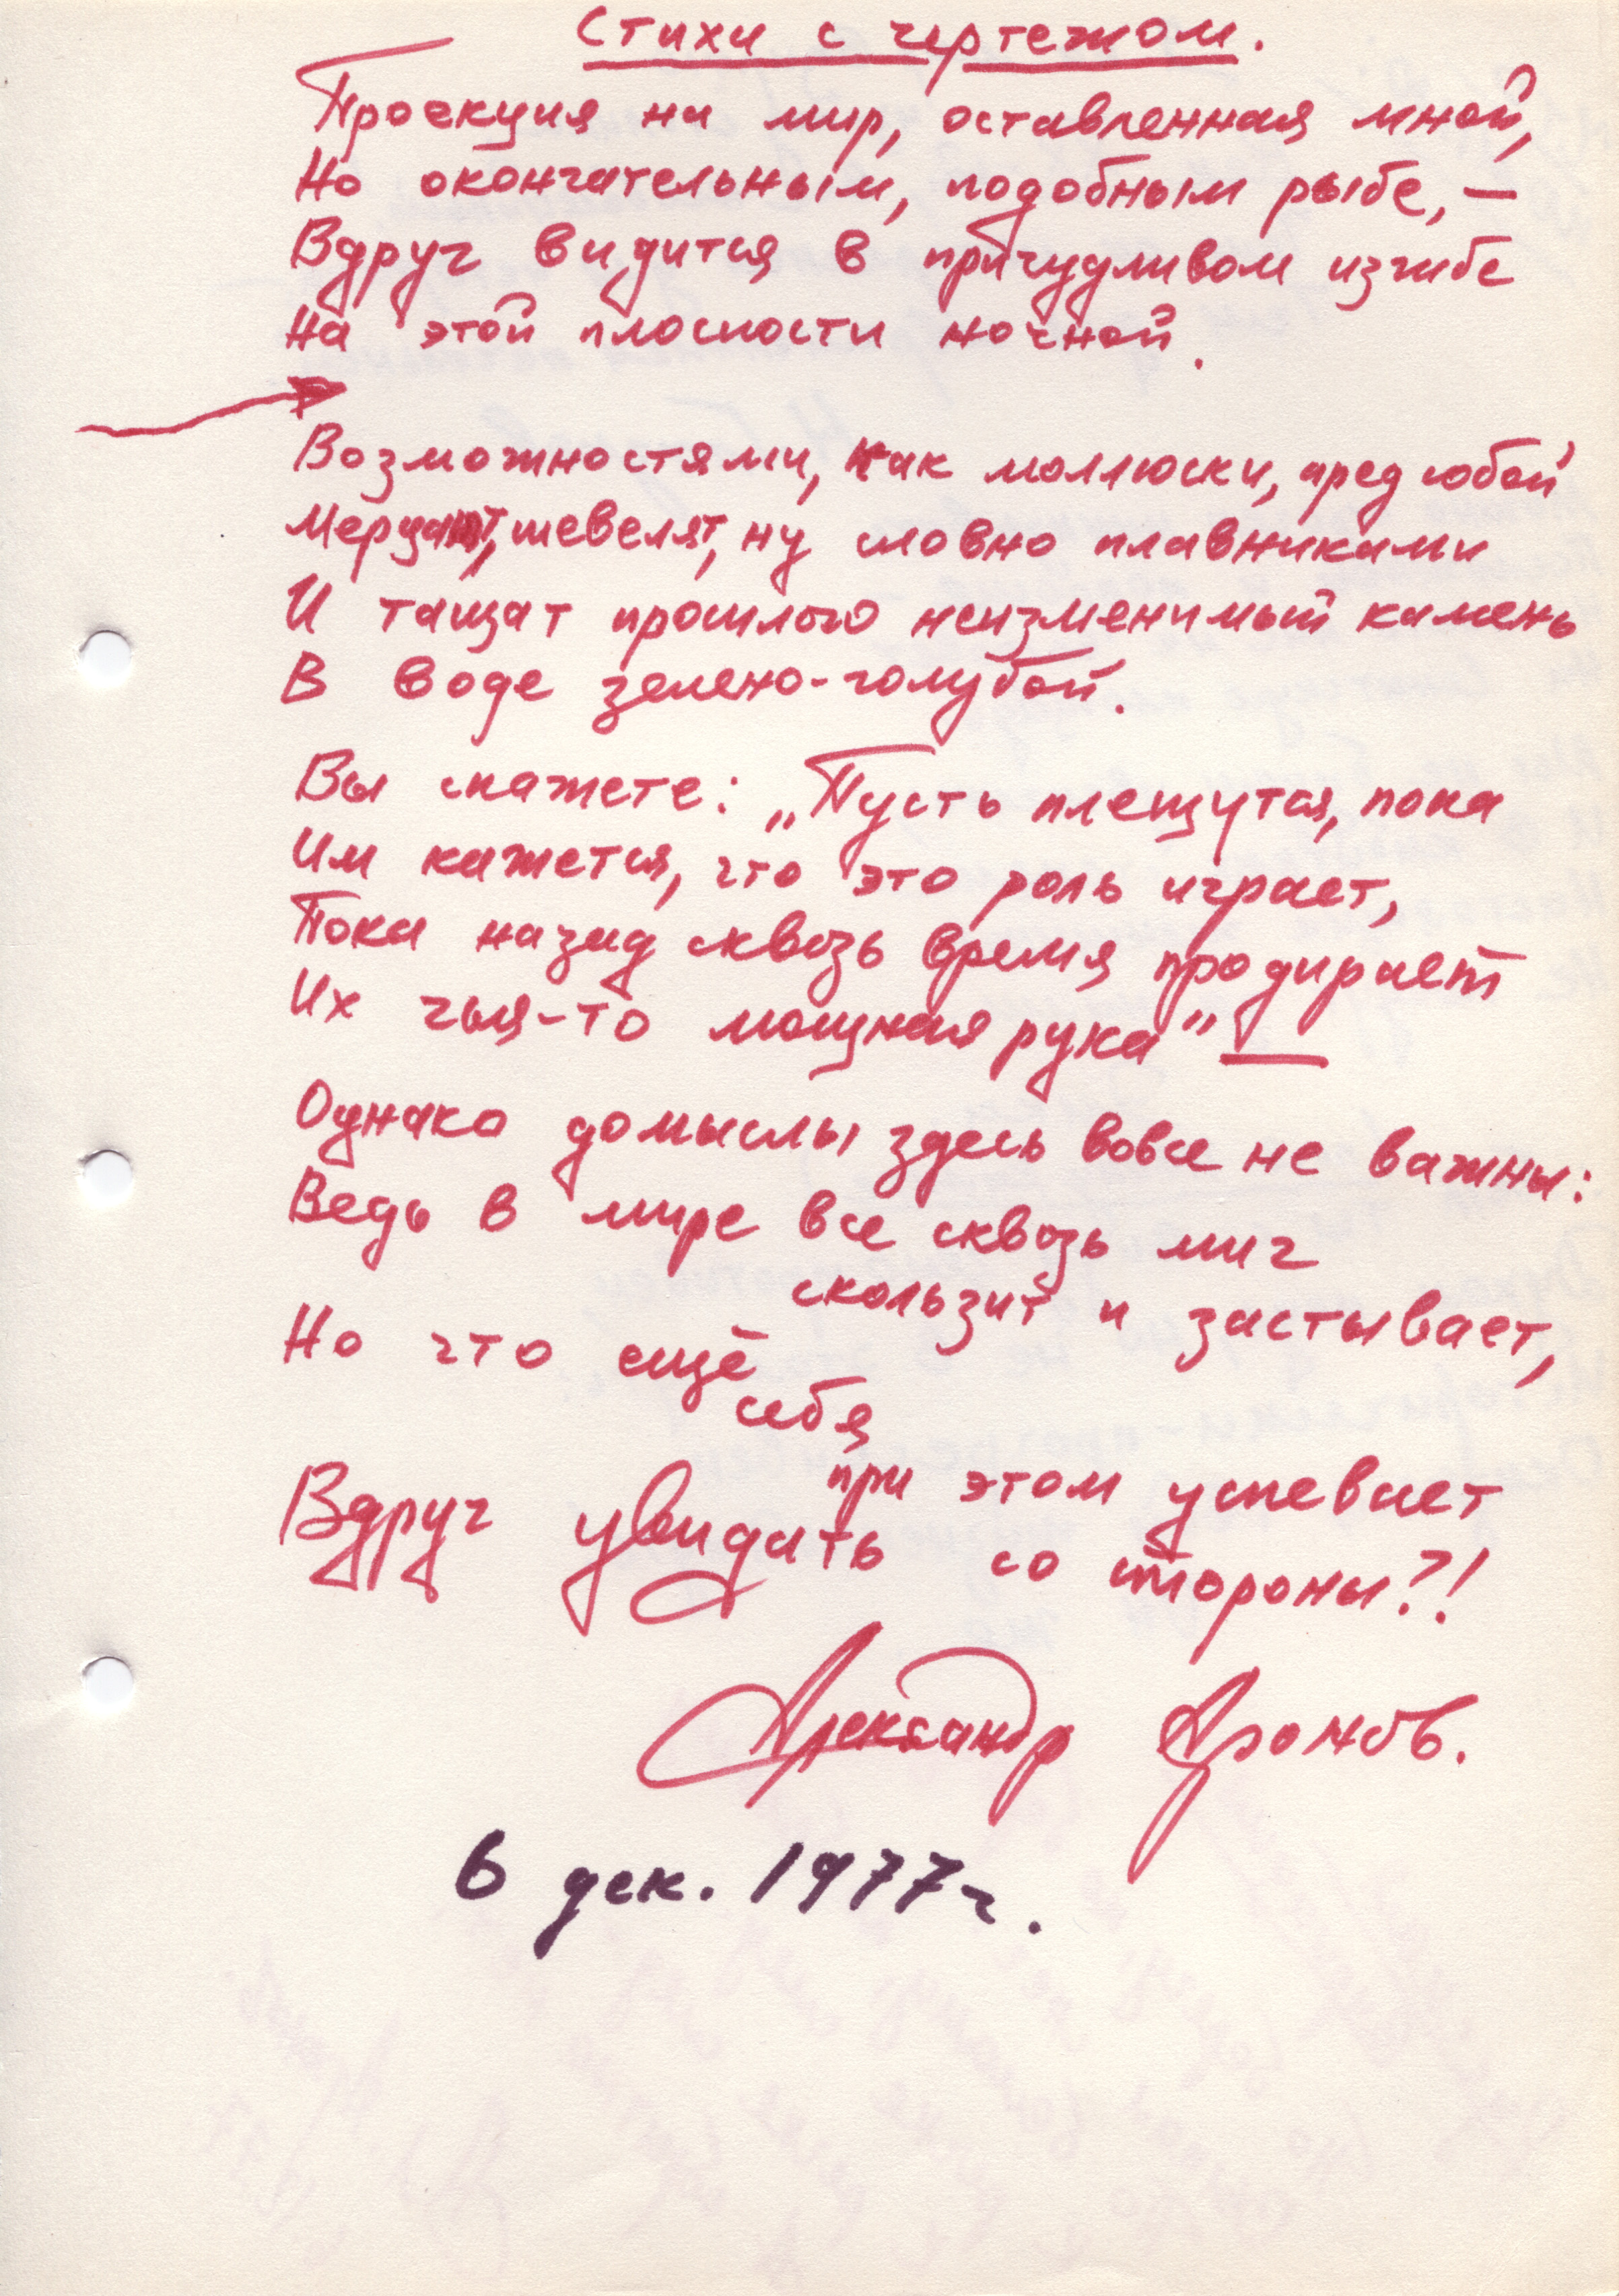 Стихи с чертежом.
Проекция на мир, оставленная мной,
Но окончательным, подобным рыбе, —
Вдруг видится в причудливом изгибе
На этой плоскости ночной.
Возможностями, как моллюски, пред собой
Мерцают, шевелят, ну словно плавниками
И тащат прошлого неизменимый камень
В воде зелено-голубой.
Вы скажете: „Пусть плещутся, пока
Им кажется, что это роль играет,
Пока назад сквозь время продирает
Их чья-то мощная рука" —
Однако домыслы здесь вовсе не важны:
Ведь в мире все сквозь миг
скользит и застывает,
Но что ещё
себя
при этом успевает
Вдруг увидать со стороны?!
Александр Аронов.
6 дек. 1977 г.